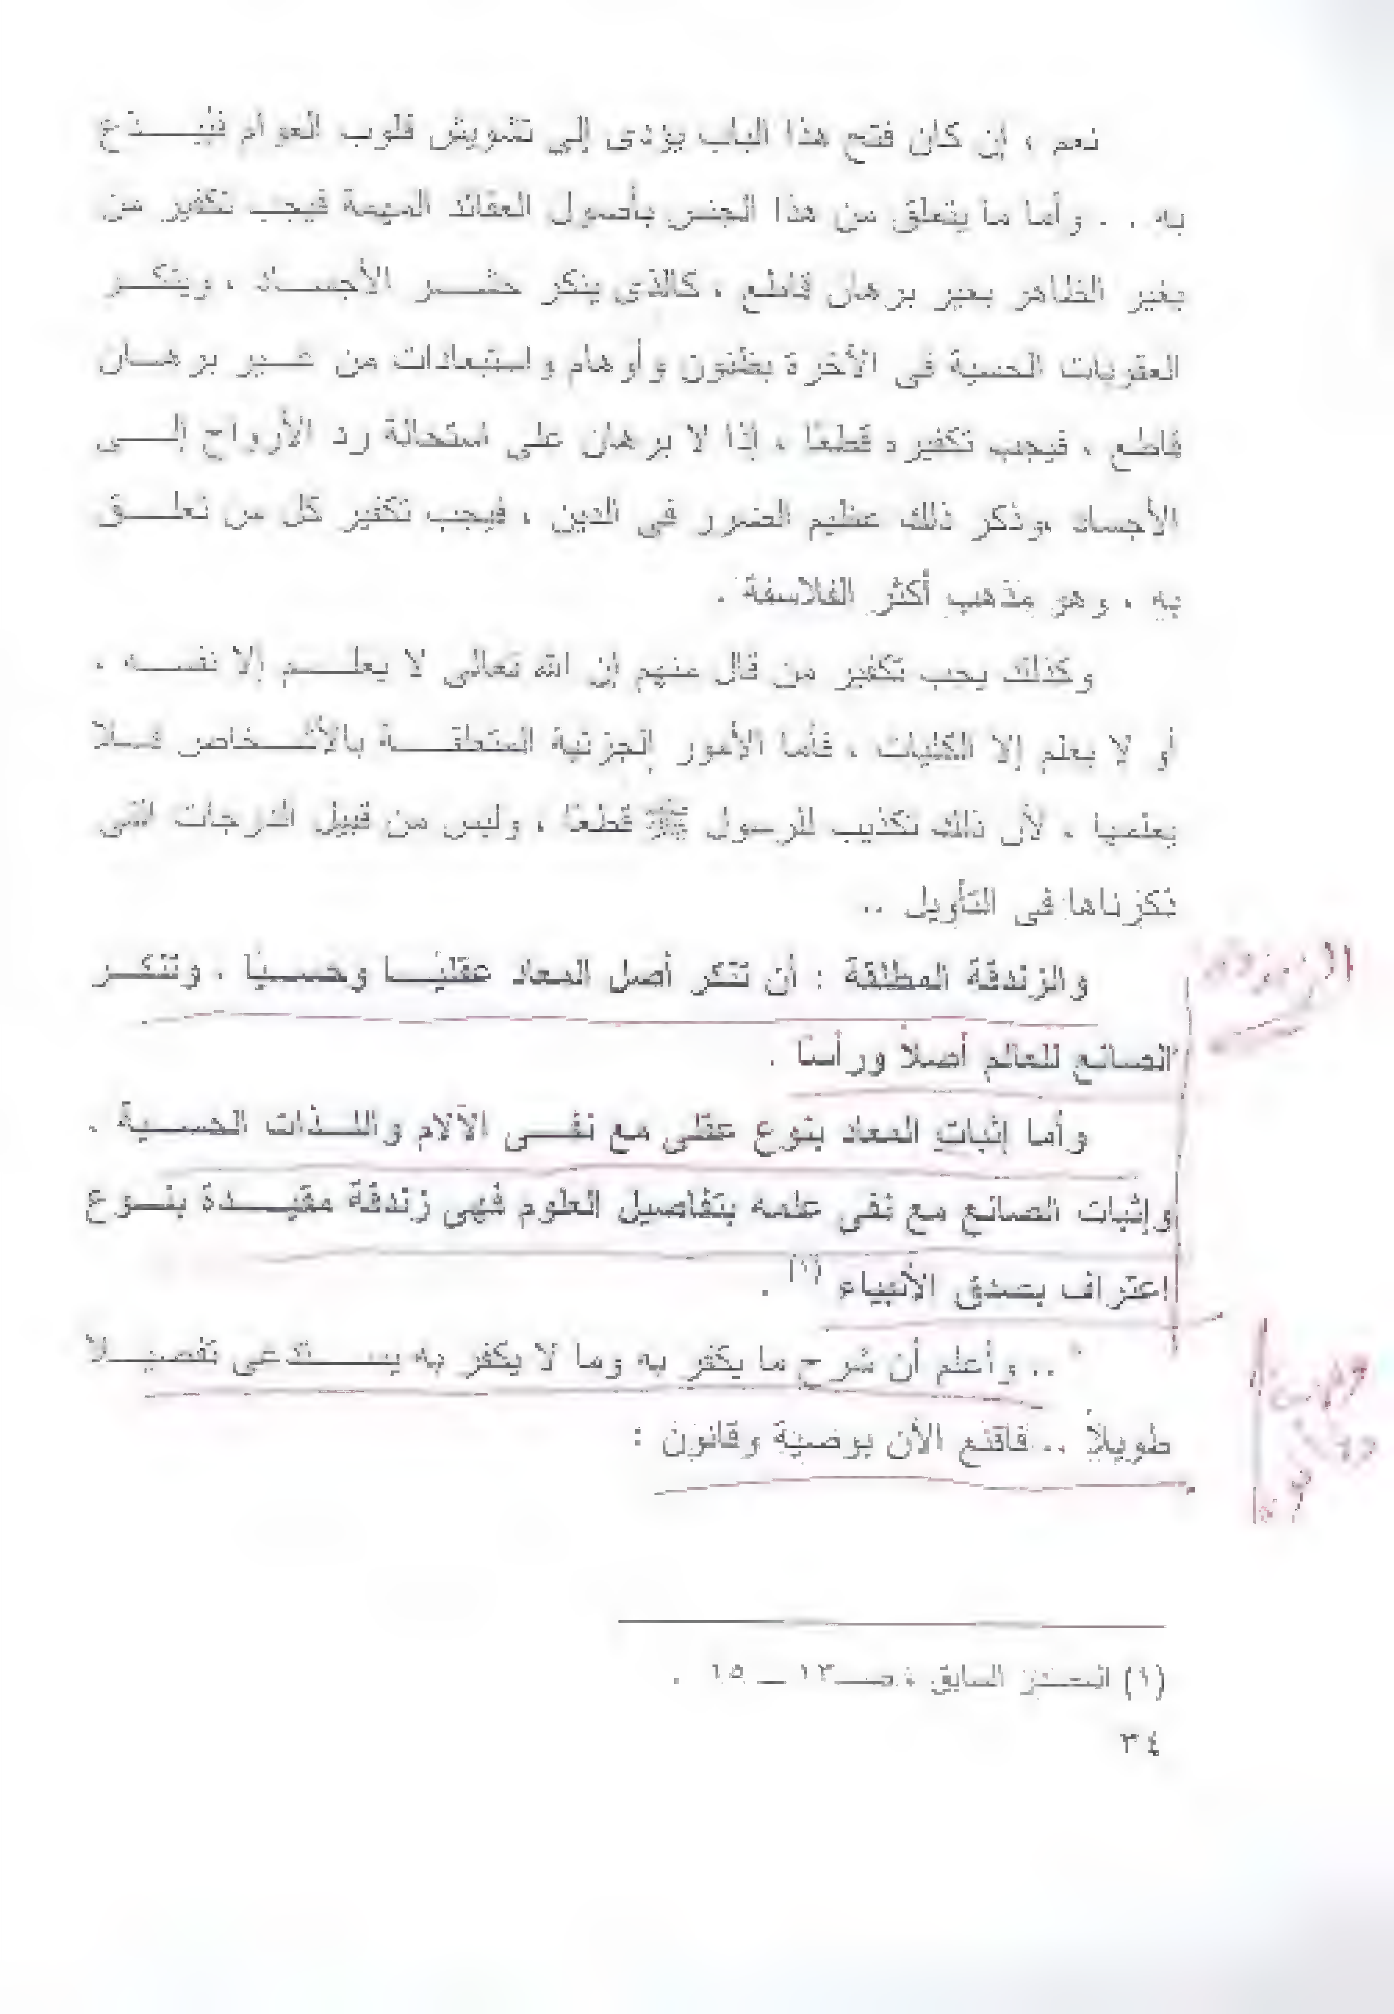 نعم ، إن كان فتح هذا الباب يؤدى إلى تشويش قلوب العوام فيُبَدَّع
به . . وأما ما يتعلق من هذا الجنس بأصول العقائد المهمة فيجب تكفير من
يغير الظاهر بغير برهان قاطع ، كالذى ينكر حشر الأجساد ، وينكر
العقوبات الحسية فى الآخرة بظنون وأوهام واستبعادات من غير برهان
قاطع ، فيجب تكفيره قطعًا ، إذا لا برهان على استحالة رد الأرواح إلى
الأجساد ،وذكر ذلك عظيم الضرر فى الدين ، فيجب تكفير كل من تعلق
به ، وهو مذهب أكثر الفلاسفة .
وكذلك يجب تكفير من قال منهم إن الله تعالى لا يعلم إلا نفسه ،
أو لا يعلم إلا الكليات ، فأما الأمور الجزئية المتعلقة بالأشخاص فلا
يعلمها ، لأن ذلك تكذيب للرسول ﷺ قطعًا ، وليس من قبيل الدرجات التى
ذكرناها فى التأويل ..
والزندقة المطلقة : أن تنكر أصل المعاد عقليًا وحسيًا ، وتنكر
الصانع للعالم أصلاً ورأسًا .
وأما إثبات المعاد بنوع عقلى مع نفى الآلام واللذات الحسية ،
وإثبات الصانع مع نفى علمه بتفاصيل العلوم فهى زندقة مقيدة بنوع
اعتراف بصدق الأنبياء (١) .
" .. وأعلم أن شرح ما يكفر به وما لا يكفر به يستدعى تفصيلاً
طويلاً .. فاقنع الآن بوصية وقانون :
(١) المصدر السابق ، صـ١٣ – ١٥ .
٣٤